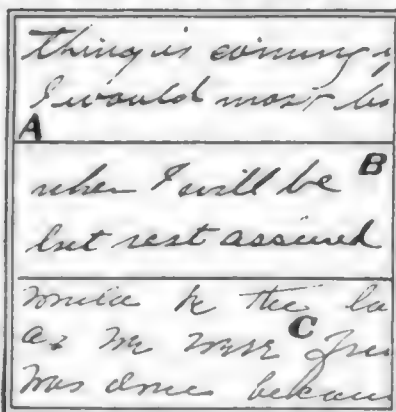 thing is coming
I would most
A
when I will be B
but rest assured
the la
as we were C
was done becau